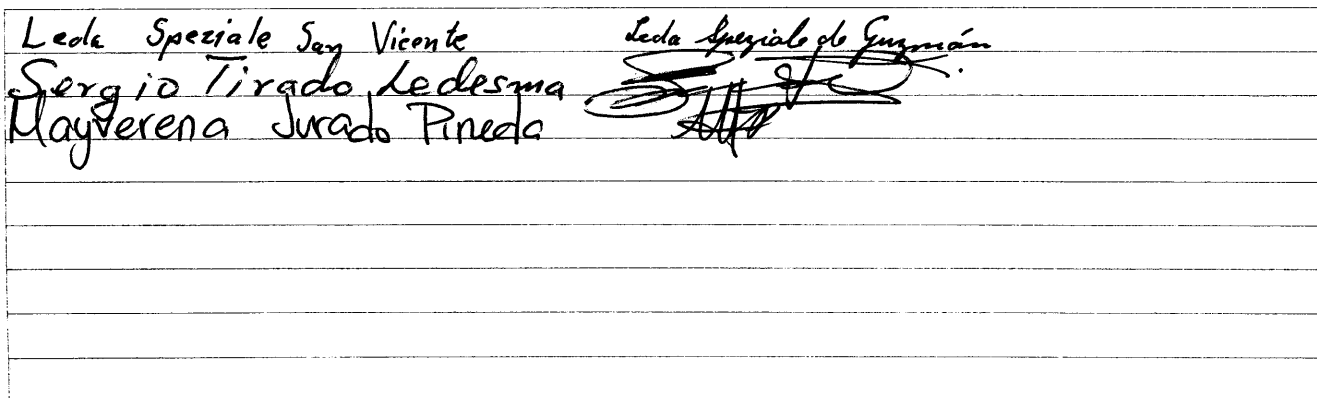 Leda Speziale San Vicente Leda Speziale de Guzmán
Sergio Tirado Ledesma
Mayverena Jurado Pineda